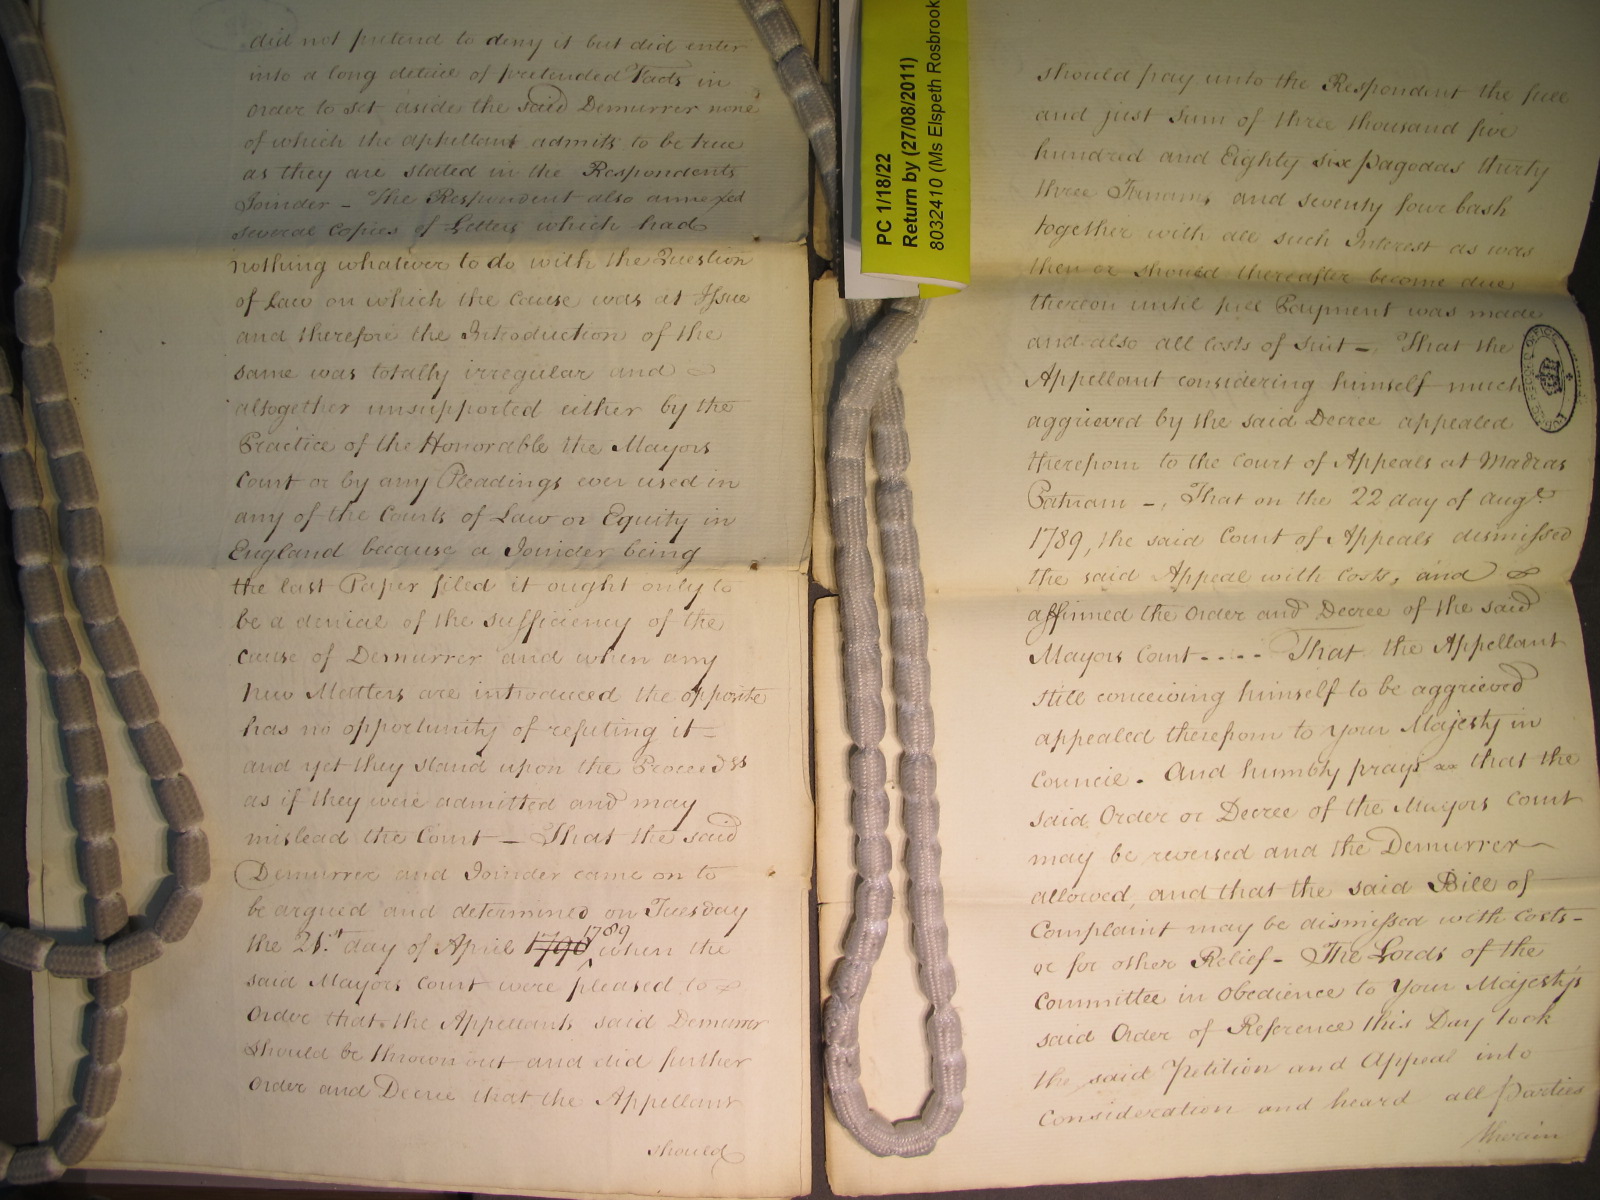 did not pretend to deny it but did enter
into a long detail of pretended Facts in
order to set aside the said Demurrer none
of which the appellant admits to be true
as they are stated in the Respondents
Joinder – The Respondent also annexed
several Copies of Letters which had
nothing whatever to do with the Question
of Law on which the Cause was at Issue
and therefore the Introduction of the
same was totally irregular and
altogether unsupported either by the
Practice of the Honorable the Mayors
Court or by any Pleadings ever used in
any of the Courts of Law or Equity in
England because a Joinder being
the last Paper filed it ought only to
be a denial of the sufficiency of the
cause of Demurrer and when any
New Matters are introduced the opposite
has no opportunity of refuting it –
and yet they stand upon the Proceedss
as if they were admitted and may
mislead the Court – That the said
Demurrer and Joinder came on to
be argued and determined on Tuesday
the 21st day of April 1790 1789 when the
said Mayors Court were pleased to
Order that the Appellants said Demurrer
should be thrown out and did further
Order and Decree that the Appellant
should
PC 1/18/22
Return by (27/08/2011)
8032410 (Ms Elspeth Rosbrook
should pay unto the Respondent the full
and just Sum of three thousand five
hundred and Eighty six Pagodas thirty
three Fanams and seventy four Cash
together with all such Interest as was
then or should thereafter become due
thereon until full Payment was made
and also all Costs of Suit – That the
Appellant considering himself much
aggrieved by the said Decree appealed
therefrom to the Court of Appeals at Madras
Patnam –, That on the 22 day of Augt.
1789, the said Court of Appeals dismissed
the said Appeal with Costs, and
affirmed the Order and Decree of the said
Mayors Court.... That the Appellant
still conceiving himself to be aggrieved
appealed therefrom to Your Majesty in
Council. And humbly prays that the
said Order or Decree of the Mayors Court
may be reversed and the Demurrer
allowed, and that the said Bill of
Complaint may be dismissed with costs –
or for other Relief – The Lords of the
Committee in Obedience to Your Majesty's
said Order of Reference this Day took
the said Petition and Appeal into
Consideration and heard all Parties
therein